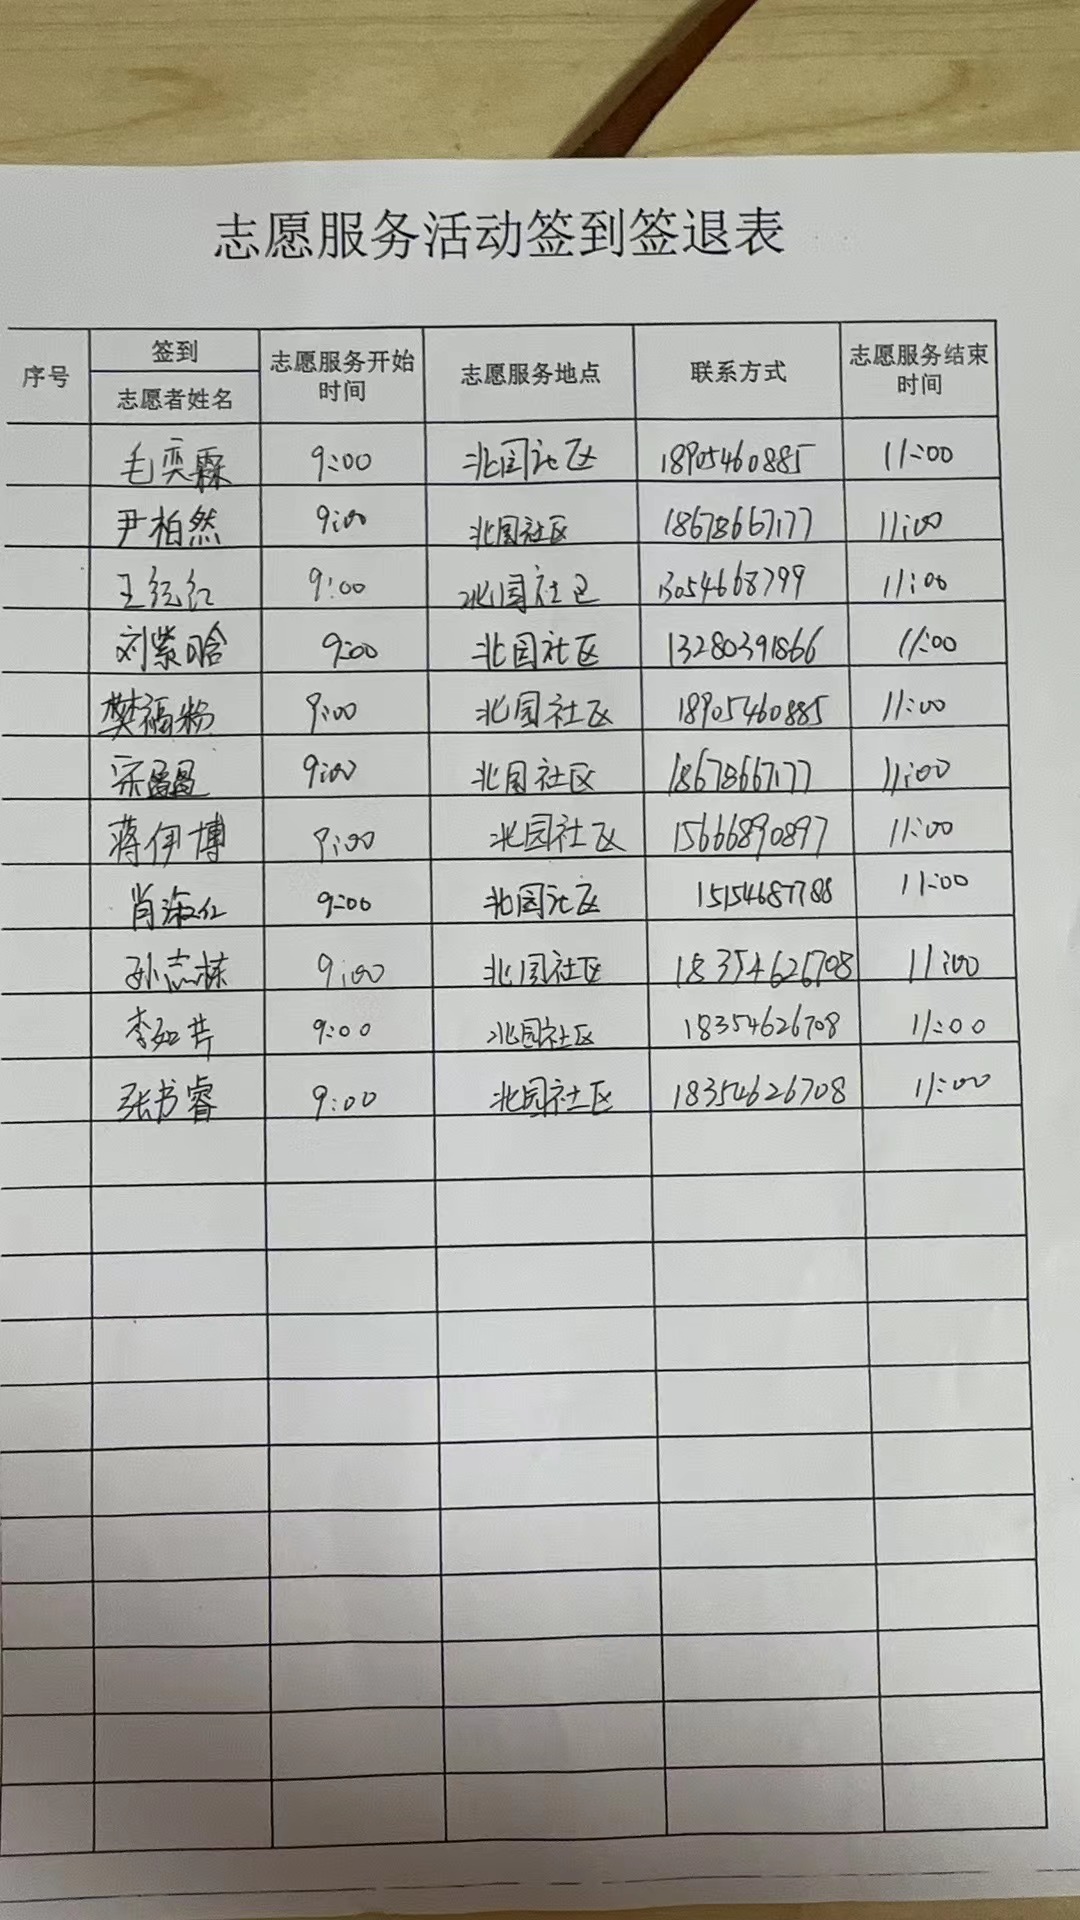 志愿服务活动签到签退表
序号 签到 志愿服务开始时间 志愿服务地点 联系方式 志愿服务结束时间
志愿者姓名
毛奕霖 9:00 北园社区 18905460885 11:00
尹柏然 9:00 北园社区 18678667177 11:00
王红 9:00 北园社区 13054668799 11:00
刘紫晗 9:00 北园社区 13280391866 11:00
樊福粉 9:00 北园社区 18905460885 11:00
宋晶晶 9:00 北园社区 18678667177 11:00
蒋伊博 9:00 北园社区 15666890897 11:00
肖淑红 9:00 北园社区 15154687788 11:00
孙志栋 9:00 北园社区 18354626708 11:00
李如芹 9:00 北园社区 18354626708 11:00
张书睿 9:00 北园社区 18354626708 11:00